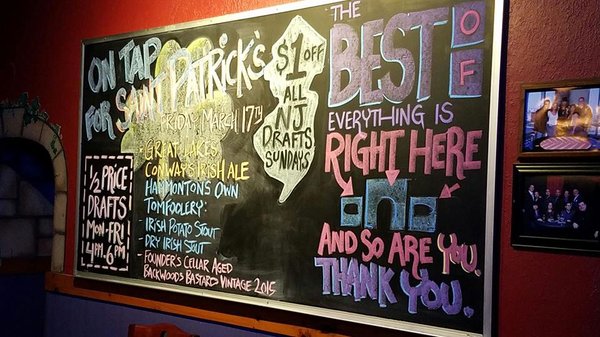 ON TAP
FOR SAINT PATRICK'S
FRIDAY MARCH 17TH
- GREAT LAKES
CONWAYS IRISH ALE
HAMMONTON'S OWN
TOMFOOLERY:
- IRISH POTATO STOUT
- DRY IRISH STUT
- FOUNDER'S CELLAR AGED
BACKWOODS BASTARD VINTAGE 2015
1/2 PRICE
DRAFTS
MON-FRI
4PM-6PM
$1 OFF
ALL
NJ
DRAFTS
SUNDAYS
THE
BEST OF
EVERYTHING IS
RIGHT HERE
AND SO ARE YOU.
THANK YOU.